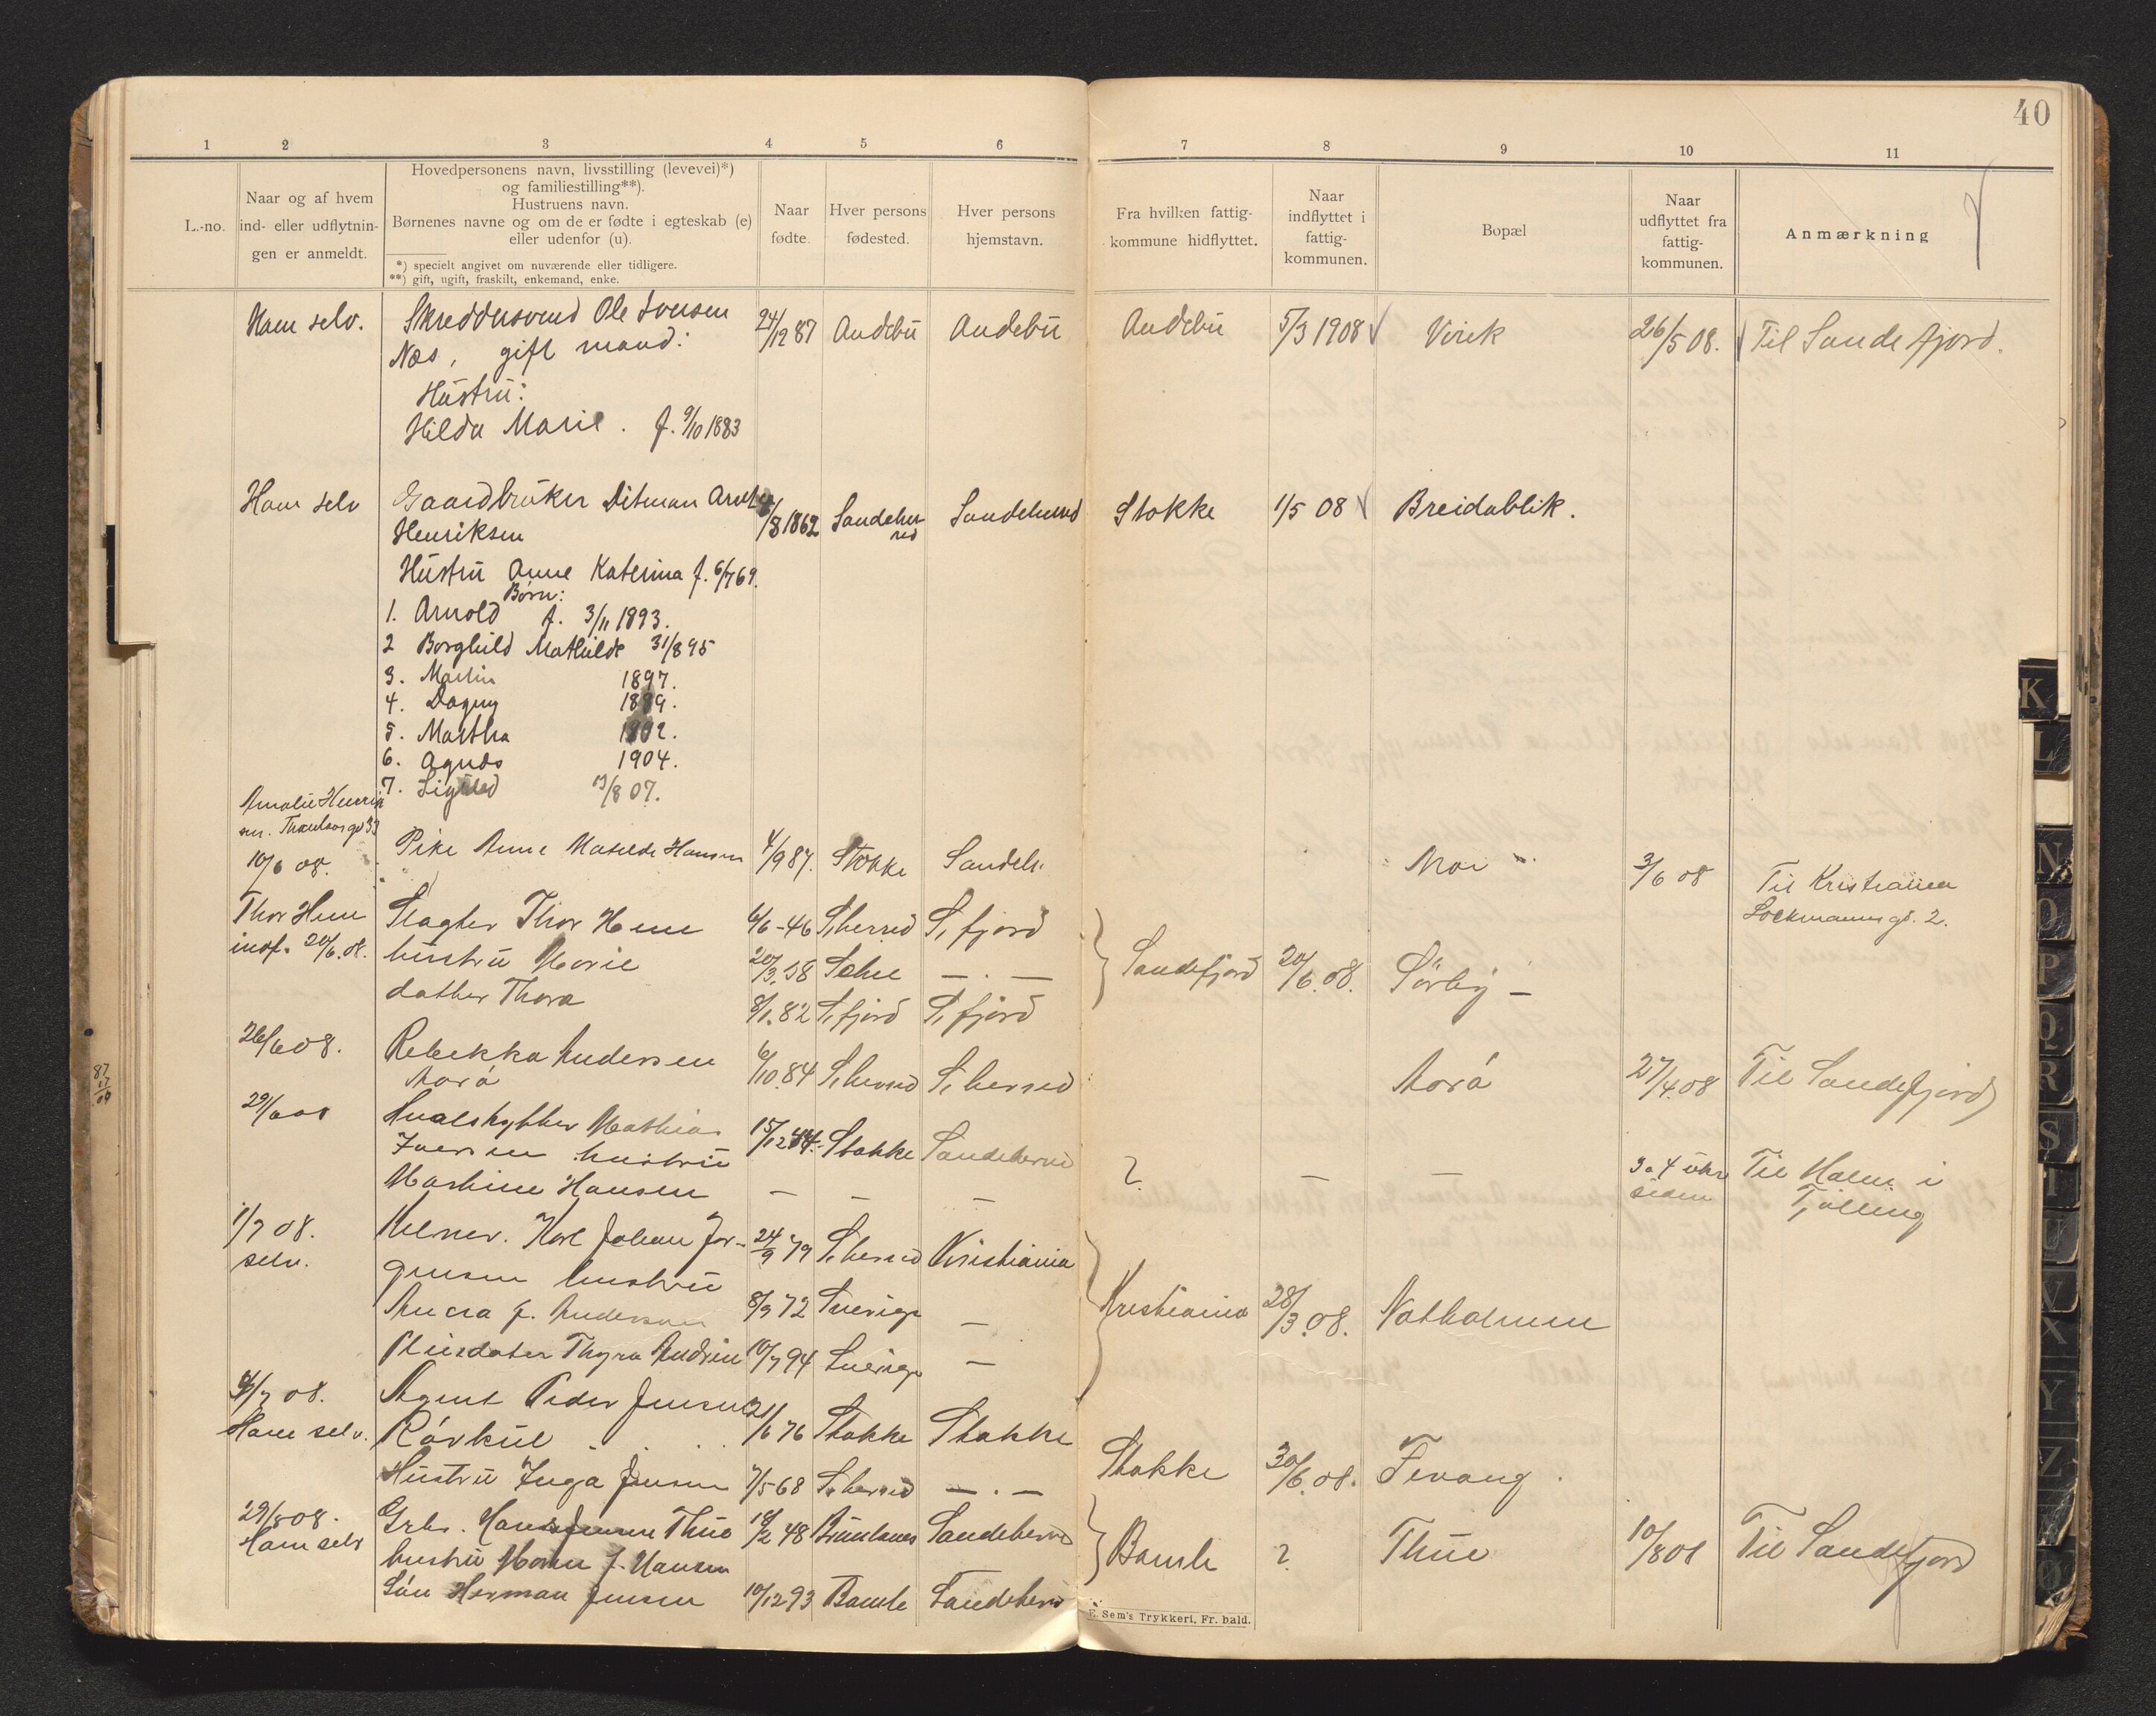 40
1 2 3 4 5 6 7 8 9 10 11
L.-no.
Naar og af hvem
ind- eller udflytnin-
gen er anmeldt.
Hovedpersonens navn, livsstilling (levevei)*)
og familiestilling**).
Hustruens navn.
Børnenes navne og om de er fødte i egteskab (e)
eller udenfor (u).
*) specielt angivet om nuværende eller tidligere.
**) gift, ugift, fraskilt, enkemand, enke.
Naar
fødte.
Hver persons
fødested.
Hver persons
hjemstavn.
Fra hvilken fattig-
kommune hidflyttet.
Naar
indflyttet i
fattig-
kommunen.
Bopæl
Naar
udflyttet fra
fattig-
kommunen.
Anmærkning
Ham selv. Skreddersvend Ole Iversen 24/12 87 Andebu Andebu Andebu 5/3 1908 Virik 26/5 08. Til Sandefjord.
Næs, gift mand:
Hustru:
Hilda Marie. f. 9/10 1883
Ham selv Gaardbruker Ditman /8 1862 Sandeher Sandeherred Stokke 1/5 08 Breidablik.
Henriksen red
Hustru Anne Katerina f. 6/7 69.
Børn:
1. Arnold f. 3/11 1893.
2 Borghild Mathilde 31/8 95
3. Martin 1897.
4. Dagny 1899.
5. Martha 1902.
6. Agnes 1904.
7. Sigurd 13/8 07.
Amalie Henrik
sen. Thaulowsgd 33
10/6 08. Pike Anne Matilde Hansen 4/9 87. Stokke Sandeh. Moe 3/6 08 Til Kristiania
Lockmannsgt. 2.
Thor Hem Slagter Thor Hem 6/6-46 S,herred S,fjord
indf. 20/6.08. hustru Marie 20/3.58 Selve — . — Sandefjord 20/6.08. Sörby —
datter Thora 8/1.82 S,fjord S,fjord
26/6 08. Rebekka Andersen 6/10.84 S,herred S,herred Korá 27/4.08 Til Sandefjord
Korá
29/6 08 Hvalskytter Mathias 15/12 44. Stokke Sandeherred ? — — 3 a 4 uker Til Halm i
Iversen hustru siden Tjølling
Mathine Hansen — — —
1/7 08. Kelner. Karl Johan Jör- 24/9 79 S,herred Kristiania
selv. gensen hustru
f. Andersson 8/9 72 Sverige — Kristiania 28/3.08. Natholmen
Pleiedatter Thyra Andrine 10/7 94 Sverige —
4/7 08. Agent Peder Jensen 21/6 76 Stokke Stokke
Ham selv. Råvkul
Hustru Inga Jensen 7/5 68 S,herred — . — Stokke 30/6.08. Fevang.
29/8 08. Grbr. Hans Jensen Thue 18/2 48 Brunlanes Sandeherred Bamle ? Thue 10/8 08 Til Sandefjord
Ham selv hustru Maren J. Hansen
Sön Herman Jensen 10/12 93 Bamle Sandeherred
E. Sem's Trykkeri, Fr. hald.
87
17
09
K
L
N
O
P
Q
R
S
T
U
V
X
Y
Z
Ø